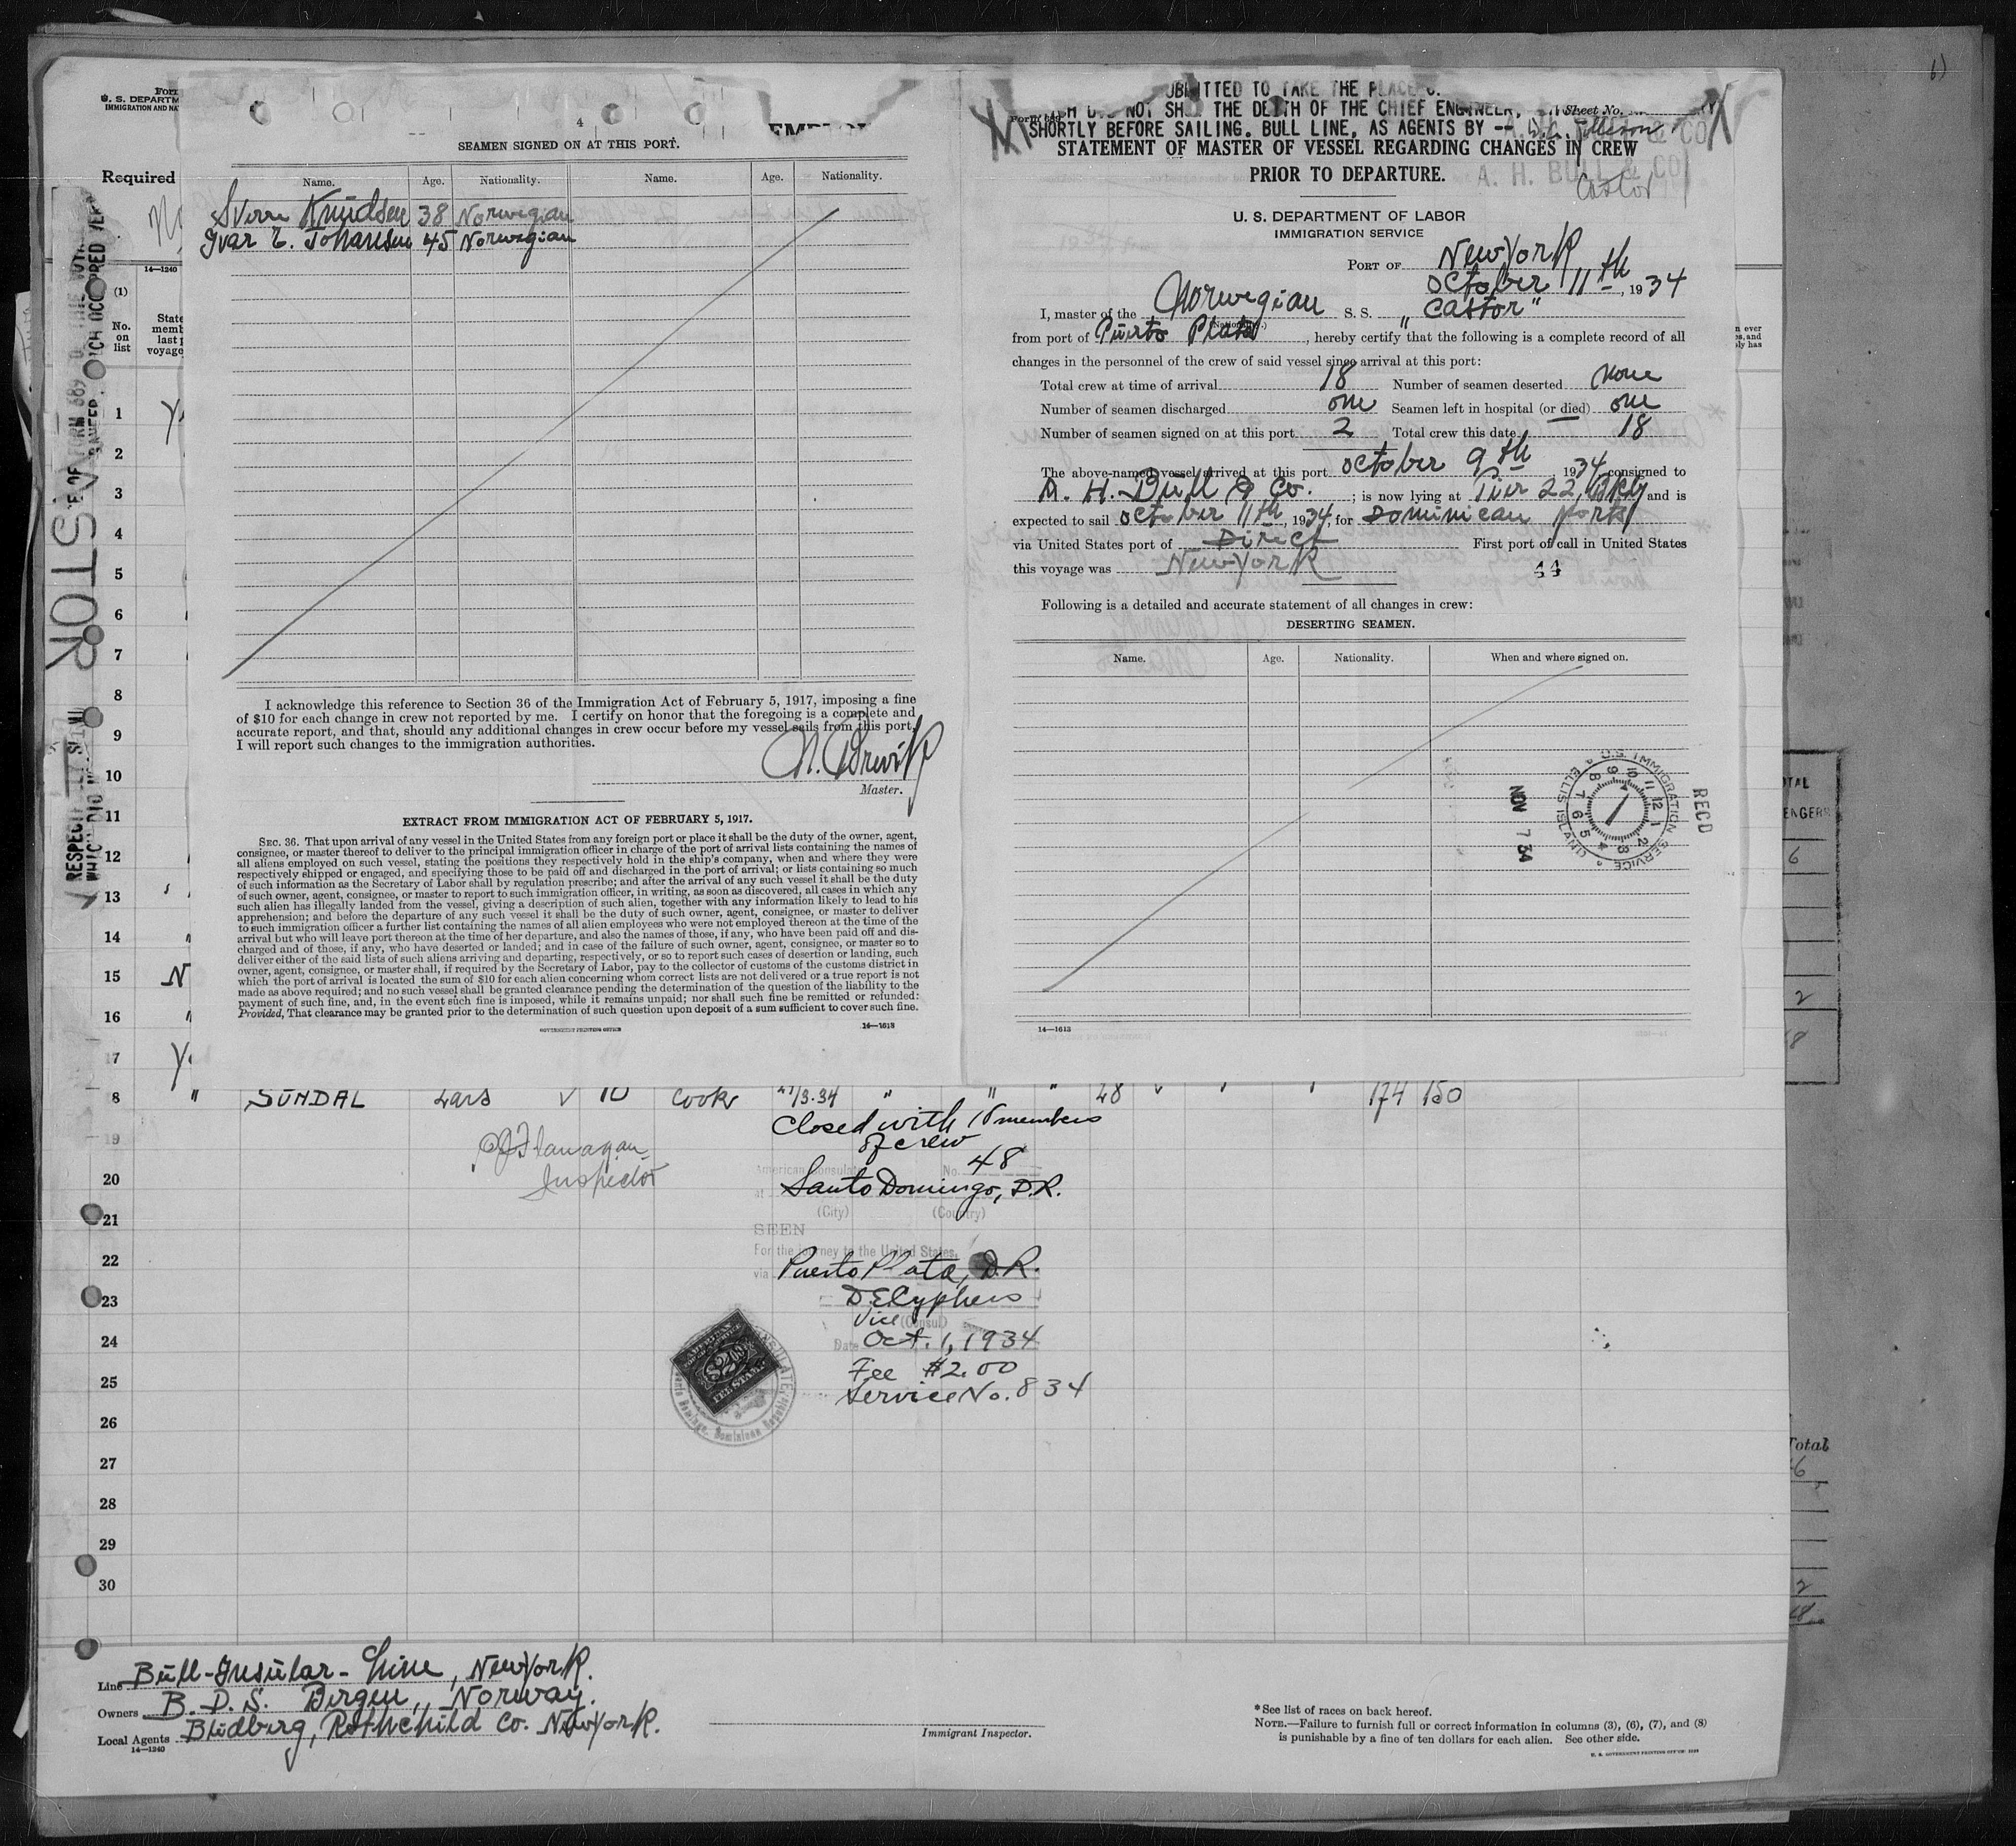 4
SEAMEN SIGNED ON AT THIS PORT.
Name. Age. Nationality. Name. Age. Nationality.
Sverre Knudsen 38 Norwegian
Ivar E. Johansen 45 Norwegian
I acknowledge this reference to Section 36 of the Immigration Act of February 5, 1917, imposing a fine
of $10 for each change in crew not reported by me. I certify on honor that the foregoing is a complete and
accurate report, and that, should any additional changes in crew occur before my vessel sails from this port,
I will report such changes to the immigration authorities.
Master.
EXTRACT FROM IMMIGRATION ACT OF FEBRUARY 5, 1917.
SEC. 36. That upon arrival of any vessel in the United States from any foreign port or place it shall be the duty of the owner, agent,
consignee, or master thereof to deliver to the principal immigration officer in charge of the port of arrival lists containing the names of
all aliens employed on such vessel, stating the positions they respectively hold in the ship's company, when and where they were
respectively shipped or engaged, and specifying those to be paid off and discharged in the port of arrival; or lists containing so much
of such information as the Secretary of Labor shall by regulation prescribe; and after the arrival of any such vessel it shall be the duty
of such owner, agent, consignee, or master to report to such immigration officer, in writing, as soon as discovered, all cases in which any
such alien has illegally landed from the vessel, giving a description of such alien, together with any information likely to lead to his
apprehension; and before the departure of any such vessel it shall be the duty of such owner, agent, consignee, or master to deliver
to such immigration officer a further list containing the names of all alien employees who were not employed thereon at the time of the
arrival but who will leave port thereon at the time of her departure, and also the names of those, if any, who have been paid off and dis-
charged and of those, if any, who have deserted or landed; and in case of the failure of such owner, agent, consignee, or master so to
deliver either of the said lists of such aliens arriving and departing, respectively, or so to report such cases of desertion or landing, such
owner, agent, consignee, or master shall, if required by the Secretary of Labor, pay to the collector of customs of the customs district in
which the port of arrival is located the sum of $10 for each alien concerning whom correct lists are not delivered or a true report is not
made as above required; and no such vessel shall be granted clearance pending the determination of the question of the liability to the
payment of such fine, and, in the event such fine is imposed, while it remains unpaid; nor shall such fine be remitted or refunded:
Provided, That clearance may be granted prior to the determination of such question upon deposit of a sum sufficient to cover such fine.
GOVERNMENT PRINTING OFFICE 14—1613
TO TAKE THE
THE DEATH OF THE CHIEF ENGINEER, Sheet No.
SHORTLY BEFORE SAILING. BULL LINE, AS AGENTS BY --
STATEMENT OF MASTER OF VESSEL REGARDING CHANGES IN CREW
PRIOR TO DEPARTURE.
A. H. BULL & CO
Castor
U. S. DEPARTMENT OF LABOR
IMMIGRATION SERVICE
PORT OF New York
October 11th, 1934
I, master of the Norwegian S. S. "Castor"
from port of Puerto Plata, hereby certify that the following is a complete record of all
changes in the personnel of the crew of said vessel since arrival at this port:
Total crew at time of arrival 18 Number of seamen deserted None
Number of seamen discharged one Seamen left in hospital (or died) one
Number of seamen signed on at this port 2 Total crew this date 18
The above-named vessel arrived at this port October 9th, 1934, consigned to
A. H. Bull & Co. ; is now lying at Pier 22, Bkly and is
expected to sail October 11th, 1934, for Dominican ports
via United States port of Direct First port of call in United States
this voyage was New York
44
Following is a detailed and accurate statement of all changes in crew:
DESERTING SEAMEN.
Name. Age. Nationality. When and where signed on.
RECD
U.S. IMMIGRATION SERVICE ELLIS ISLAND
NOV 7 34
14—1613
U. S. DEPARTM
IMMIGRATION AND NA
Required
14—1240
(1)
No. on list
State
memb
last p
voyage
1
2
3
4
5
6
7
8
9
10
11
12
13
14
15 N
16 "
17
8 " SUNDAL Lars v 10 Cook /3.34 " " " 48 174 150
closed with members
of crew
19
Flanagan
Inspector
American Consulate No. 48
20
Santo Domingo, D.R.
(City) (Country)
21
SEEN
For the journey to the United States,
22
via Puerto Plata, D.R.
23
Vice (Consul)
24
Date Oct. 1, 1934
Fee $2.00
25
Service No. 834
26
27
28
29
30
Line Bull-Insular-Line, New York.
Owners B. D. S. Bergen, Norway.
Local Agents Bludberg, Rothchild Co. New York.
14—1240
Immigrant Inspector.
*See list of races on back hereof.
NOTE.—Failure to furnish full or correct information in columns (3), (6), (7), and (8)
is punishable by a fine of ten dollars for each alien. See other side.
Total